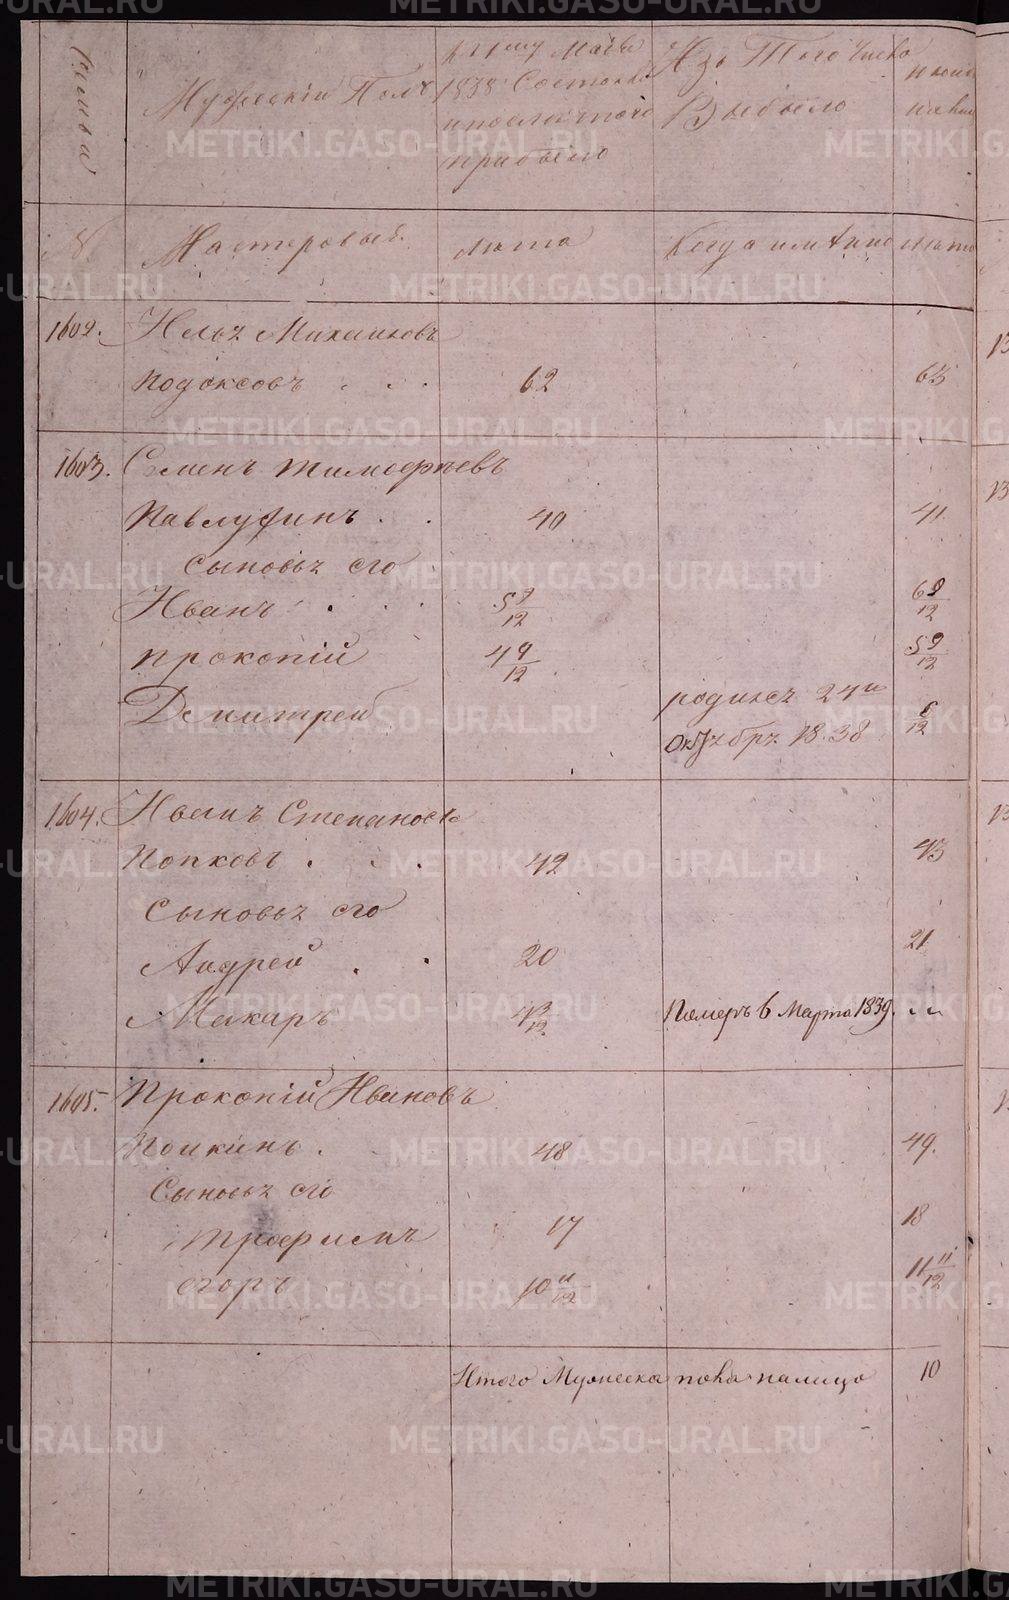 Семьи
Мужескій Полъ
къ 1му Маія
1838 Состояло
и после того
прибыло
Изъ Того Числа
Выбыло
ныне
на
№
Мастеровые
лета
Когда имянно
лета
1602.
Илья Михаиловъ
Подоксовъ . . .
62
63
1603.
Семенъ Тимофѣевъ
Павлушинъ . .
40
41.
Сыновья его
Иванъ . . .
5 9/12
6 9/12
Прокопій
4 9/12
5 9/12
Дмитрей
родился 24го
Октября 1838
6/12
1604.
Иванъ Степановъ
Попковъ . . .
42
43
Сыновья его
Андрей . .
20
21
Макаръ
Померъ 6 Марта 1839.
„ „
1605.
Прокопій Ивановъ
Пошкинъ .
48
49.
Сыновья его
Трофимъ
17
18
Егоръ
10 11/12
11 11/12
Итого Мужеска пола налицо
10
METRIKI.GASO-URAL.RU